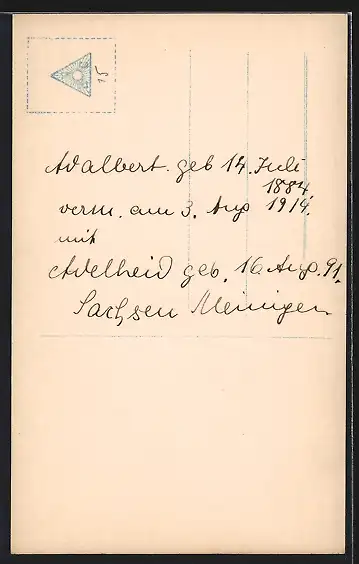 15
Adalbert. geb 14. Juli
1884
verm. am 3. Aug 1914.
mit
Adelheid geb. 16 Aug. 91.
Sachsen Meiningen